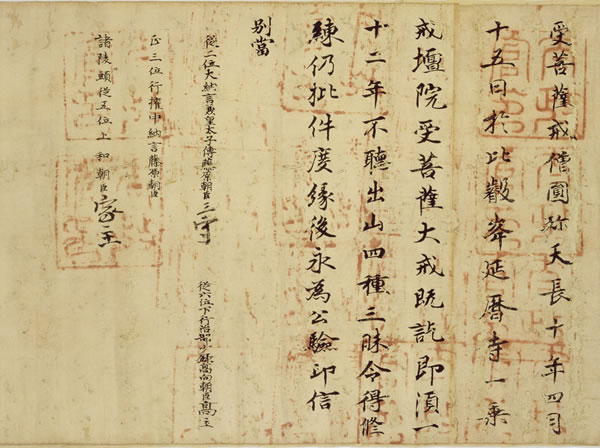 受菩薩戒僧圓珎天長十年四月
十五日於比叡峯延曆寺一乘
戒壇院受菩薩大戒既訖即須一
十二年不聽出山四種三昧令得修
練仍批件度縁後永為公驗印信
別當
從二位大納言兼皇太子傅藤原朝臣三守
從六位下行治部少録高向朝臣高主
正三位行權中納言藤原朝臣
諸陵頭從五位上和朝臣家主